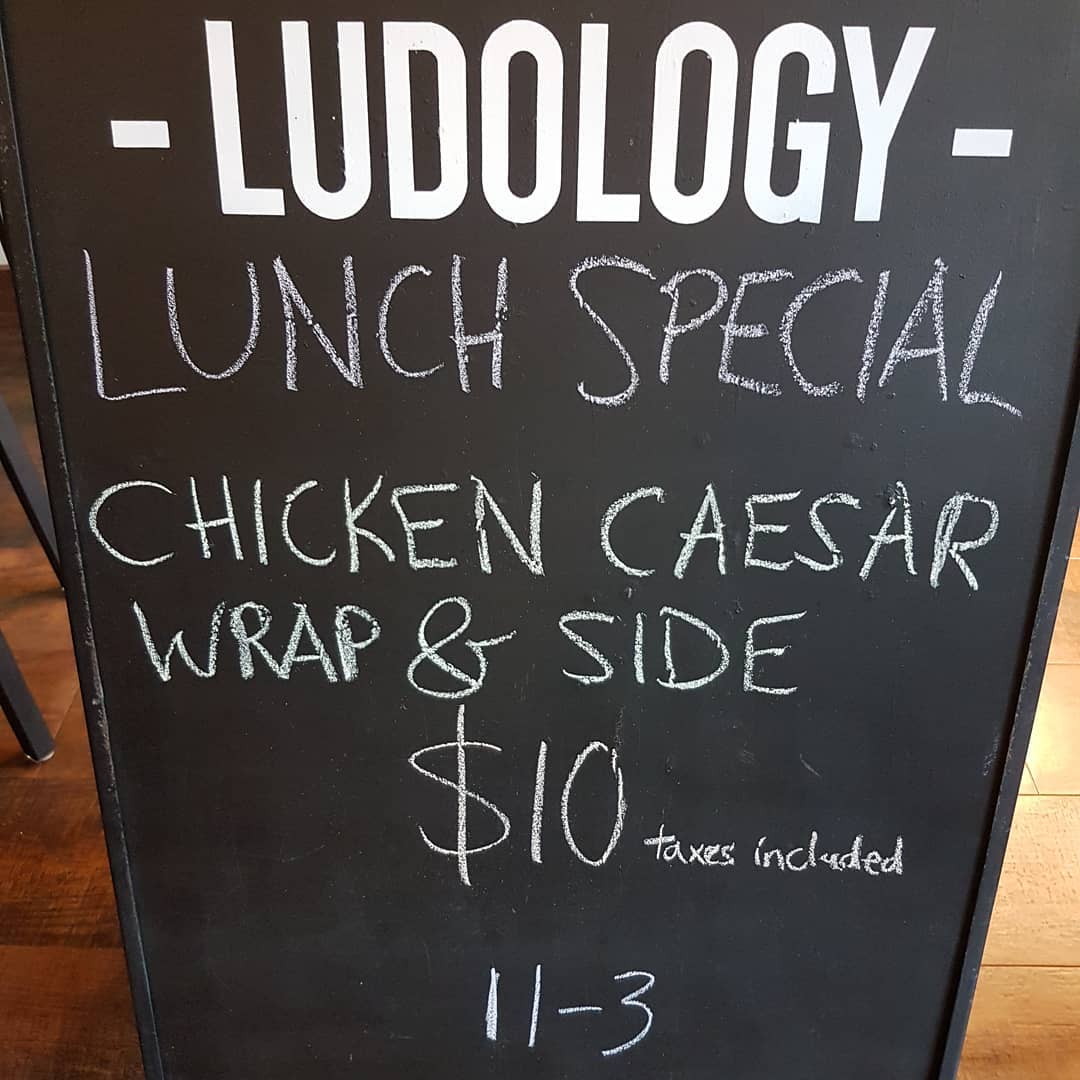 - LUDOLOGY -
LUNCH SPECIAL
CHICKEN CAESAR
WRAP & SIDE
$10 taxes included
11-3